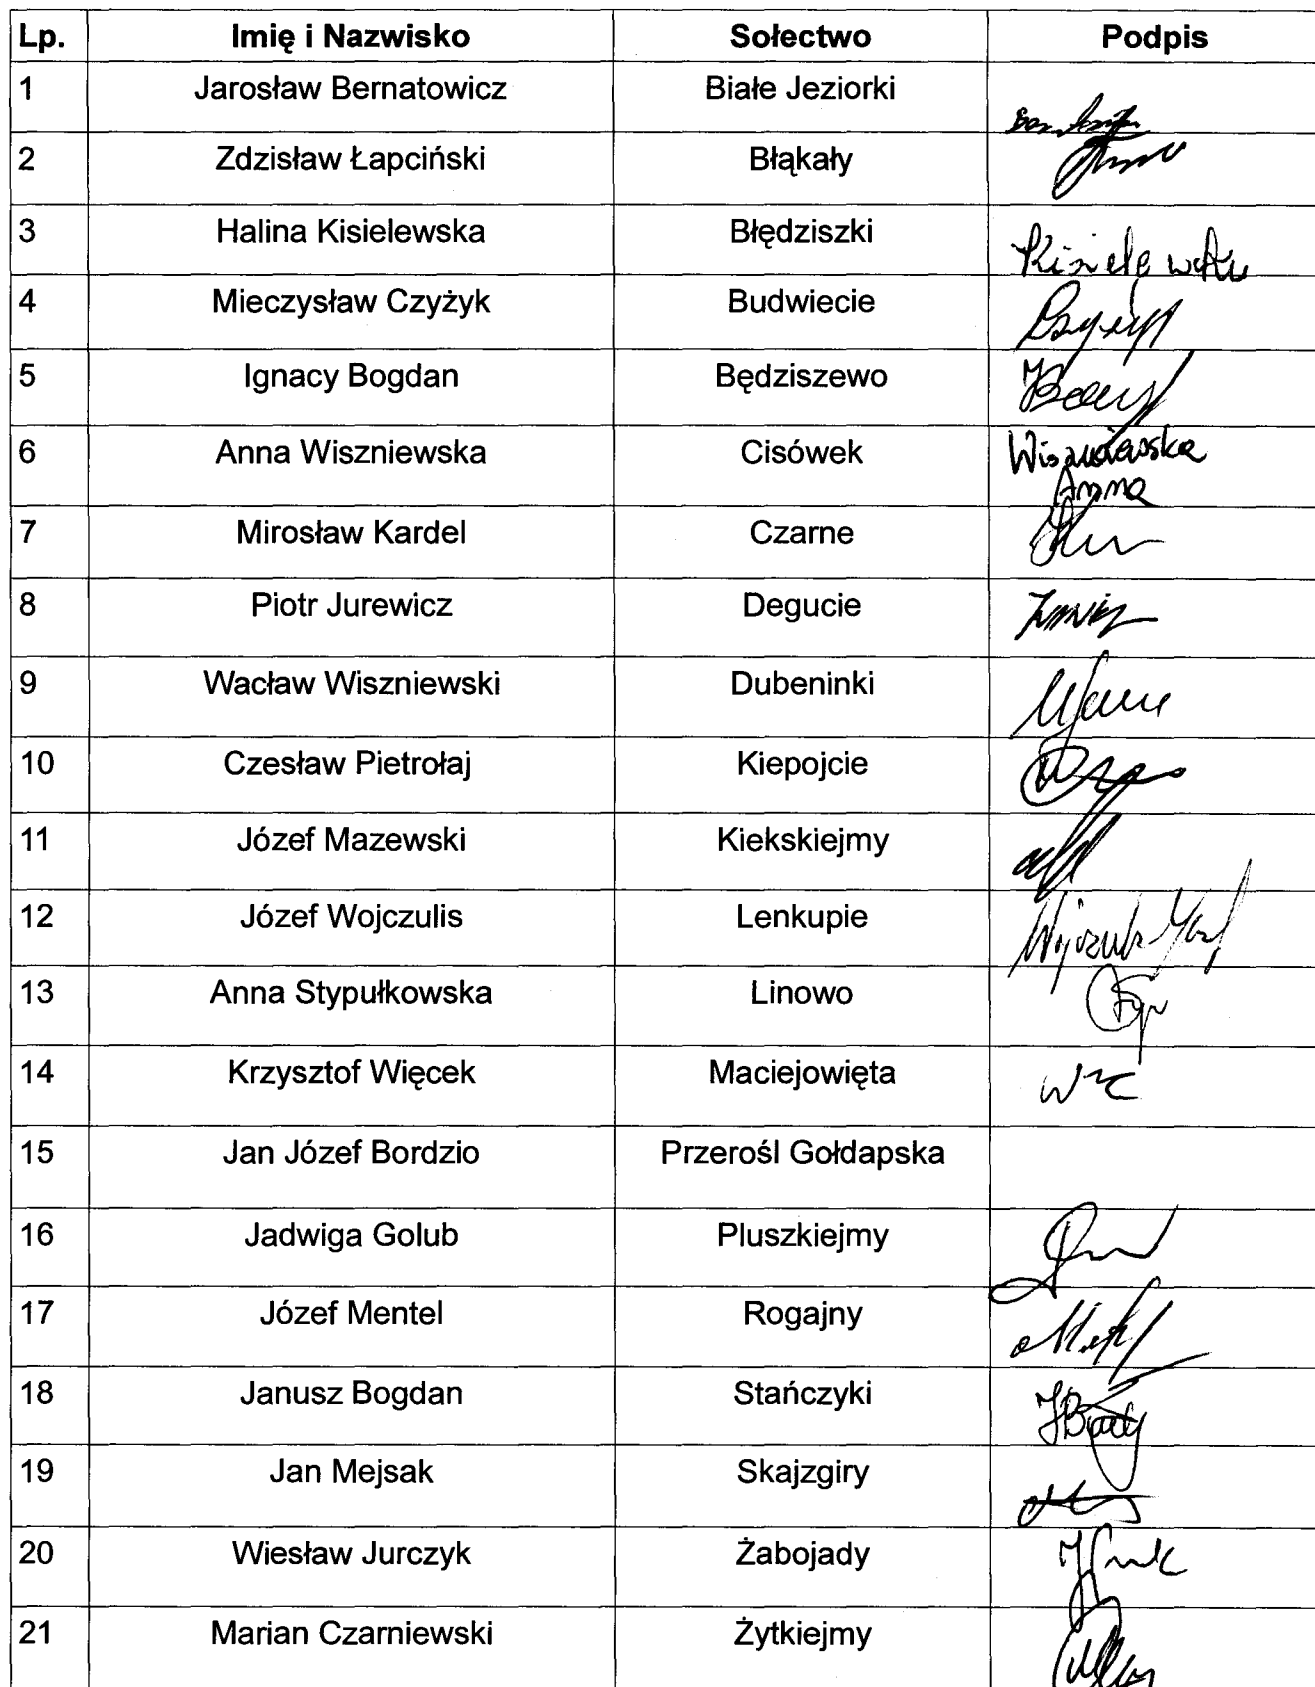 Lp. Imię i Nazwisko Sołectwo Podpis
1 Jarosław Bernatowicz Białe Jeziorki
2 Zdzisław Łapciński Błąkały
3 Halina Kisielewska Błędziszki Kisielewska
4 Mieczysław Czyżyk Budwiecie
5 Ignacy Bogdan Będziszewo
6 Anna Wiszniewska Cisówek Wiszniewska
Anna
7 Mirosław Kardel Czarne
8 Piotr Jurewicz Degucie
9 Wacław Wiszniewski Dubeninki
10 Czesław Pietrołaj Kiepojcie
11 Józef Mazewski Kiekskiejmy
12 Józef Wojczulis Lenkupie
13 Anna Stypułkowska Linowo
14 Krzysztof Więcek Maciejowięta
15 Jan Józef Bordzio Przerośl Gołdapska
16 Jadwiga Golub Pluszkiejmy
17 Józef Mentel Rogajny
18 Janusz Bogdan Stańczyki
19 Jan Mejsak Skajzgiry
20 Wiesław Jurczyk Żabojady
21 Marian Czarniewski Żytkiejmy